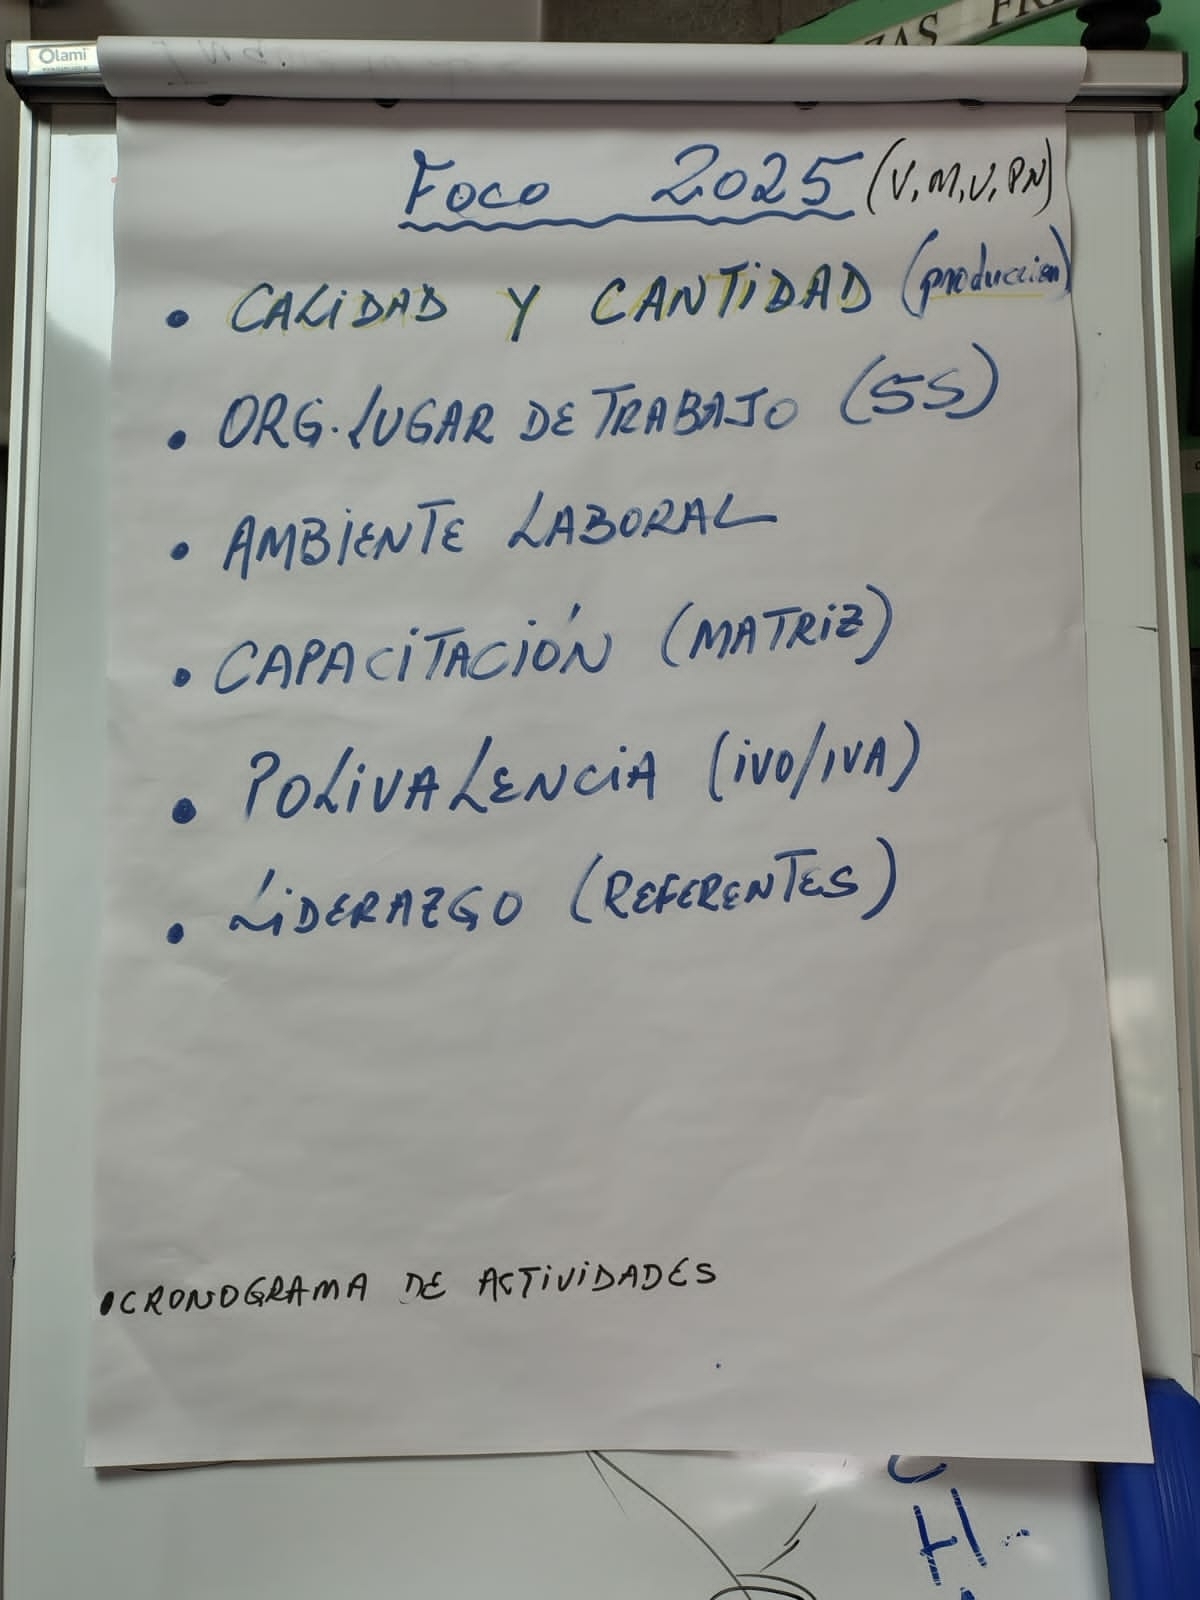 Olami
ZAS FR
Foco 2025 (V, M, V, PN)
• CALIDAD Y CANTIDAD (produccion)
• ORG. LUGAR DE TRABAJO (5S)
• AMBIENTE LABORAL
• CAPACITACIÓN (MATRIZ)
• POLIVALENCIA (IVO/IVA)
• LIDERAZGO (REFERENTES)
• CRONOGRAMA DE ACTIVIDADES